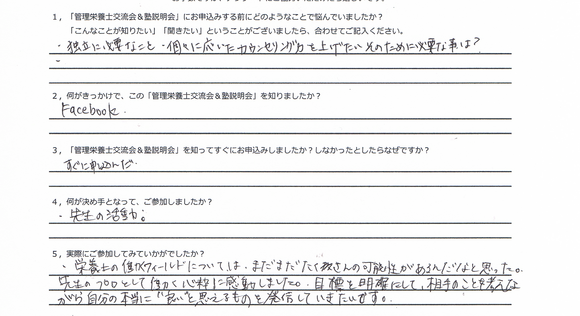 1，「管理栄養士交流会＆塾説明会」にお申込みする前にどのようなことで悩んでいましたか？
「こんなことが知りたい」「聞きたい」ということがございましたら、合わせてご記入ください。
・独立に必要なこと・個々に応いたカウンセリング力を上げたい そのために必要な事は？
2，何がきっかけで、この「管理栄養士交流会＆塾説明会」を知りましたか？
Facebook.
3，「管理栄養士交流会＆塾説明会」を知ってすぐにお申込みしましたか？しなかったとしたらなぜですか？
すぐに申込んだ.
4，何が決め手となって、ご参加しましたか？
・先生の活動。
5，実際にご参加してみていかがでしたか？
・栄養士の働くフィールドについては、まだまだたくさんの可能性があるんだなと思った。
先生のプロとして働く心粋に感動しました。目標を明確にして、相手のことを考えな
がら自分の本当に"良い"と思えるものを発信していきたいです。